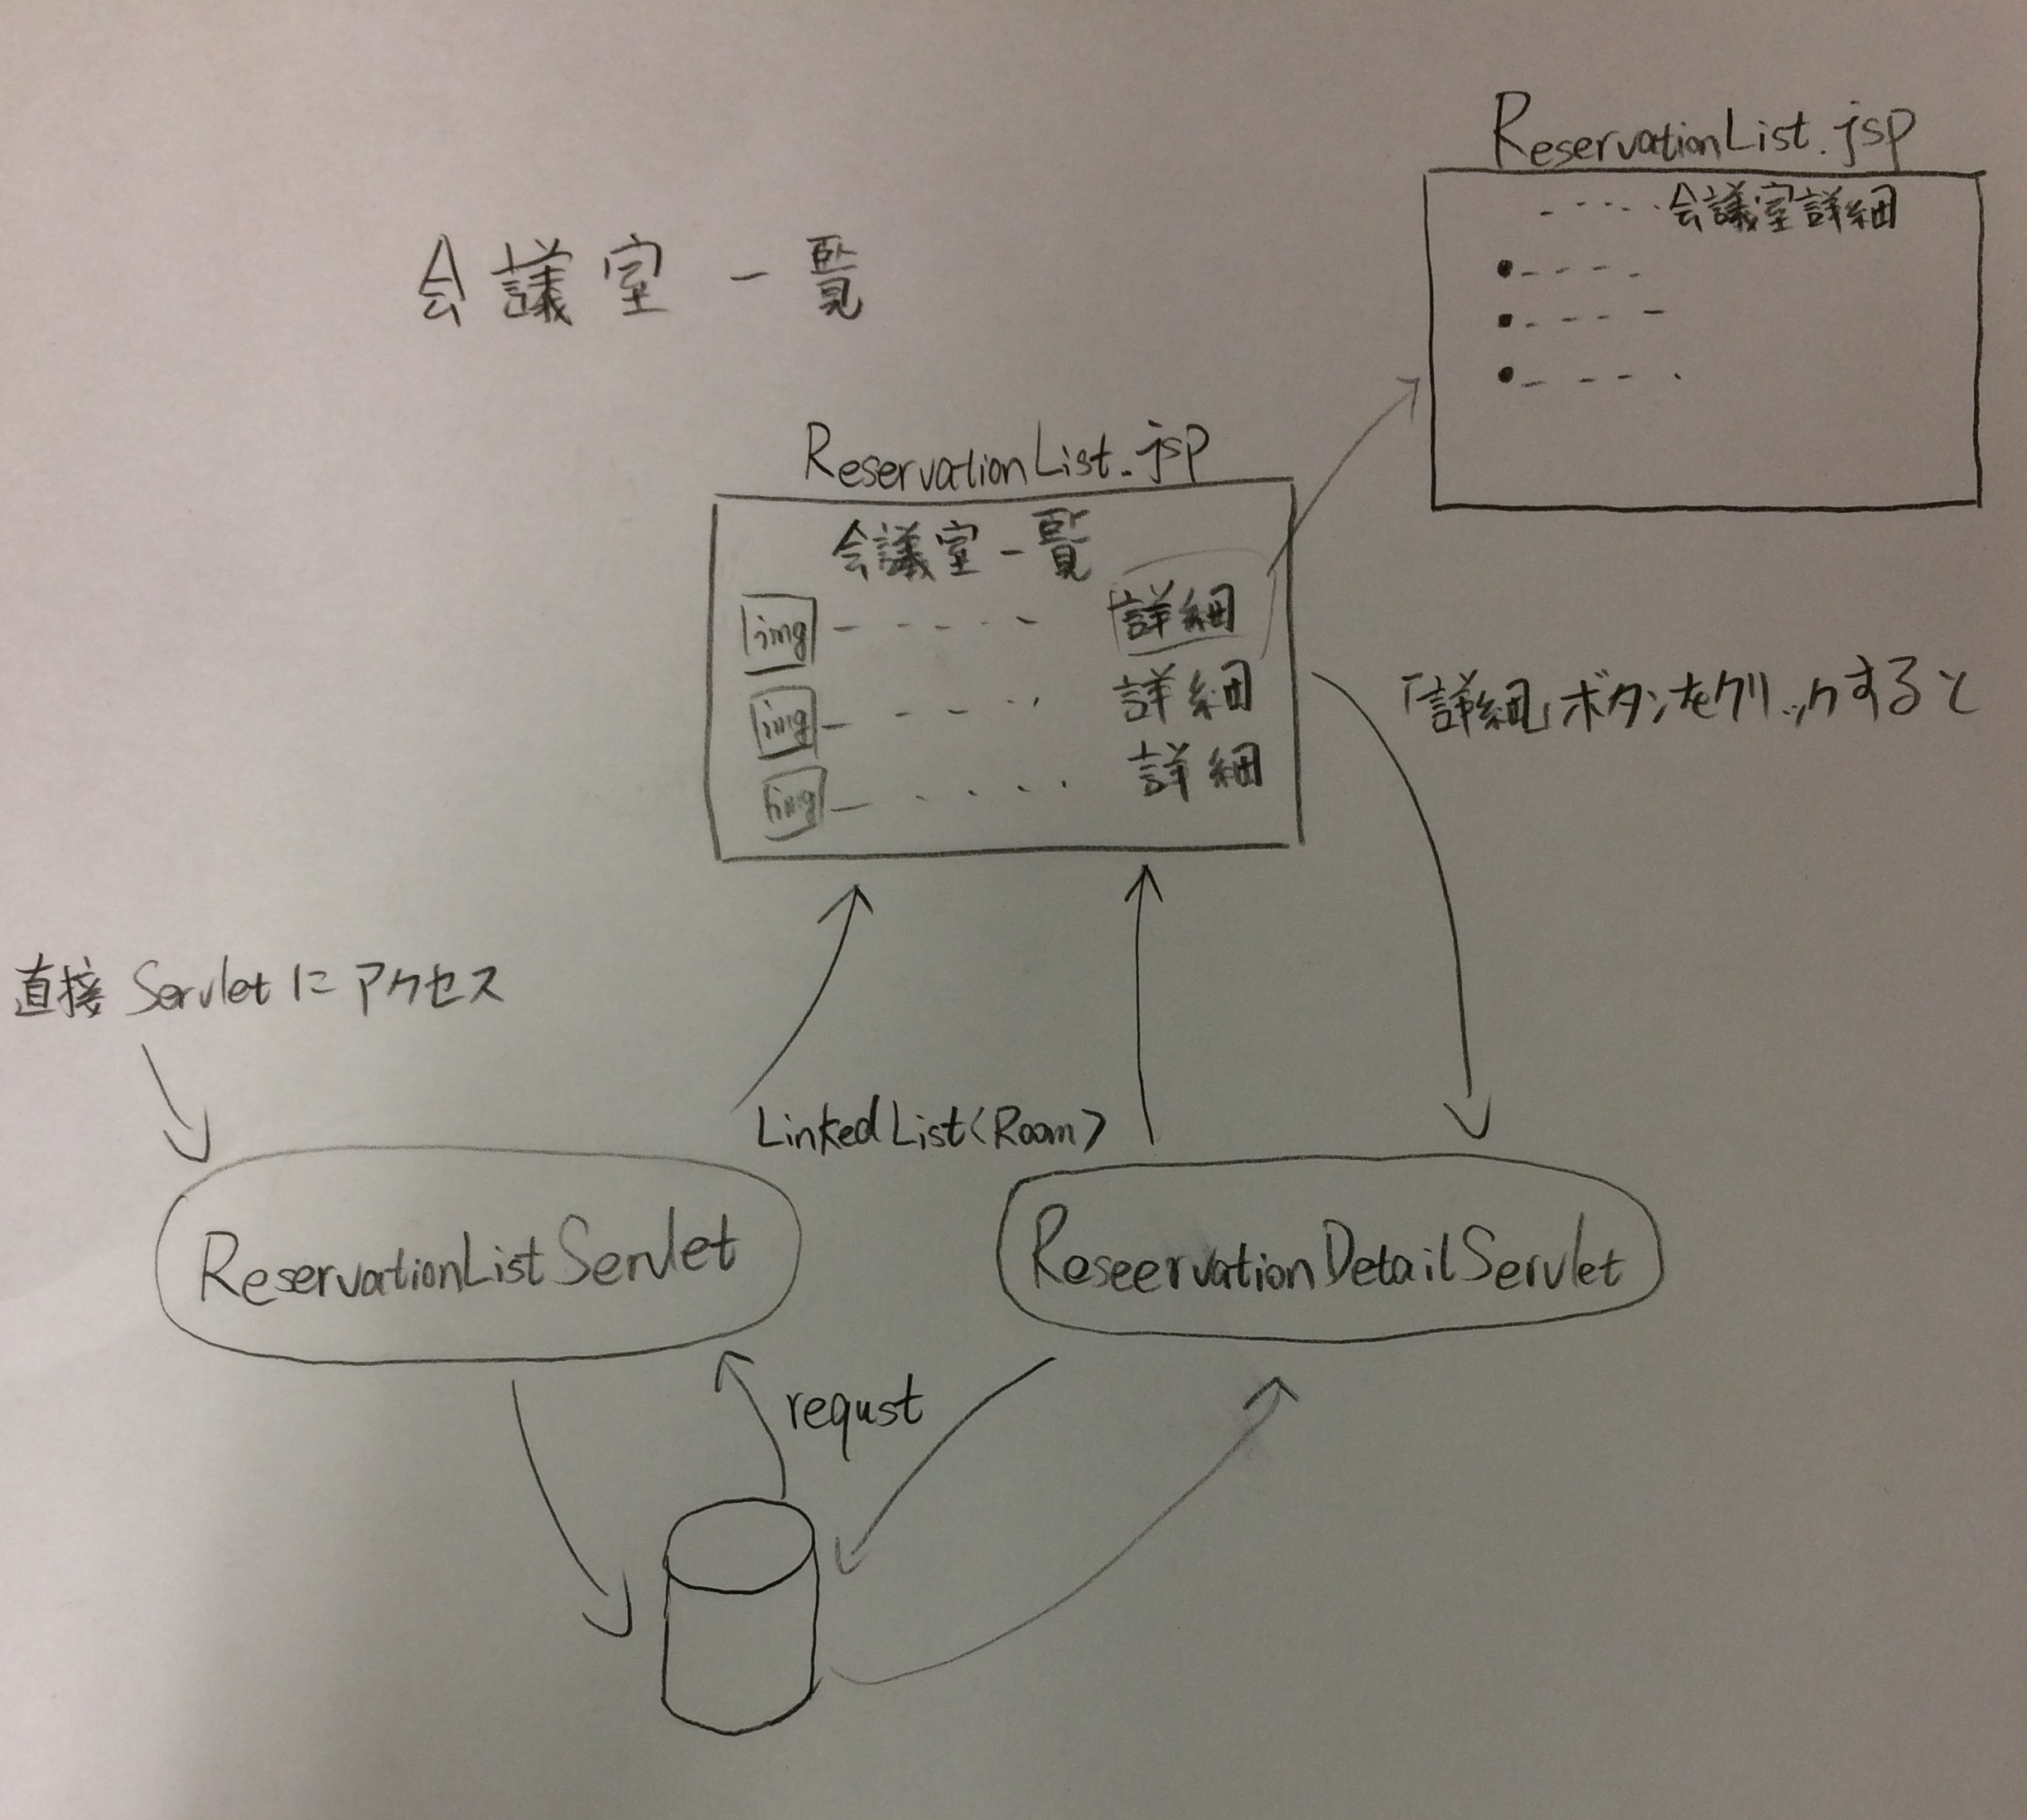 ReservationList.jsp
‐‐‐‐会議室詳細
会議室一覧
ReservationList.jsp
会議室一覧
img 詳細
img 詳細
img 詳細
「詳細」ボタンをクリックすると
直接Servletにアクセス
LinkedList<Room>
ReservationListServlet
ReseervationDetailServlet
requst